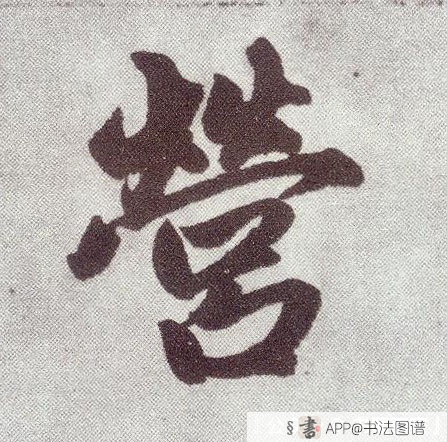 營
§ 書 APP@书法图谱